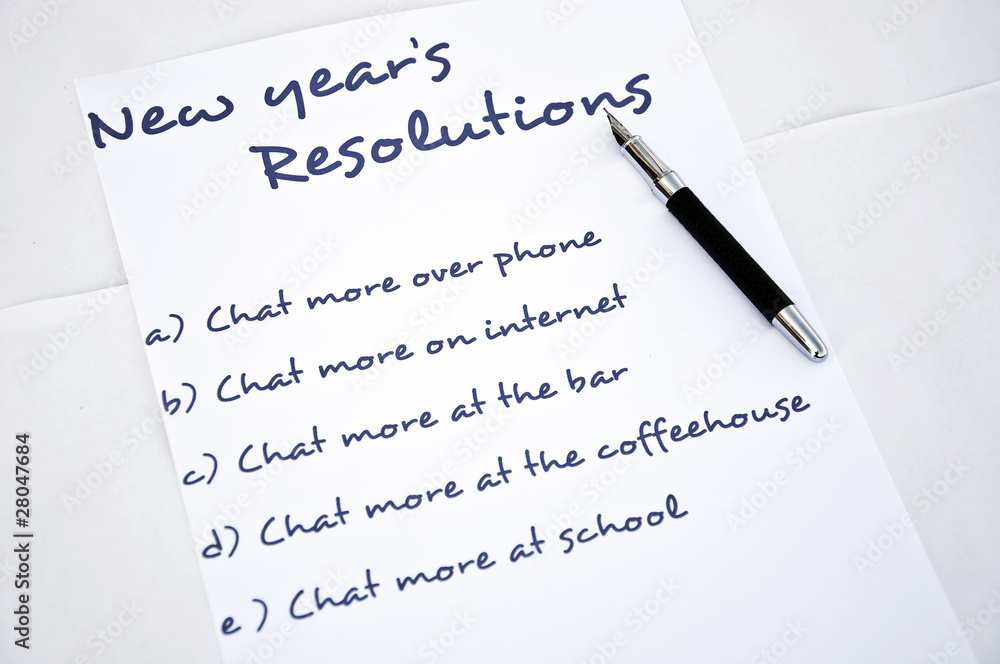 New year's
Resolutions
a) Chat more over phone
b) Chat more on internet
c) Chat more at the bar
d) Chat more at the coffeehouse
e) Chat more at school
Adobe Stock | #28047684